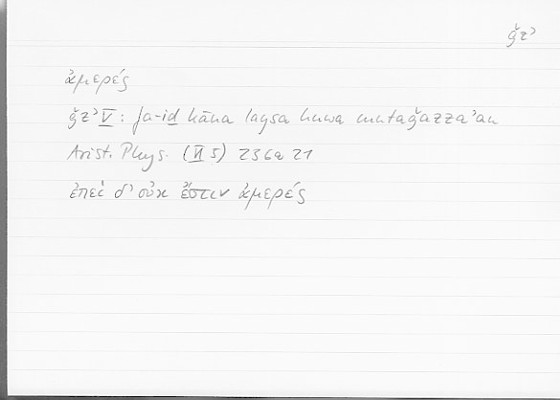 ǧzʾ
ἀμερές
ǧzʾ V: fa-id kāna laysa huwa mutaǧazzaʾan
Arist. Phys. (VI 5) 236a 21
ἐπεὶ δ' οὐκ ἔστιν ἀμερές